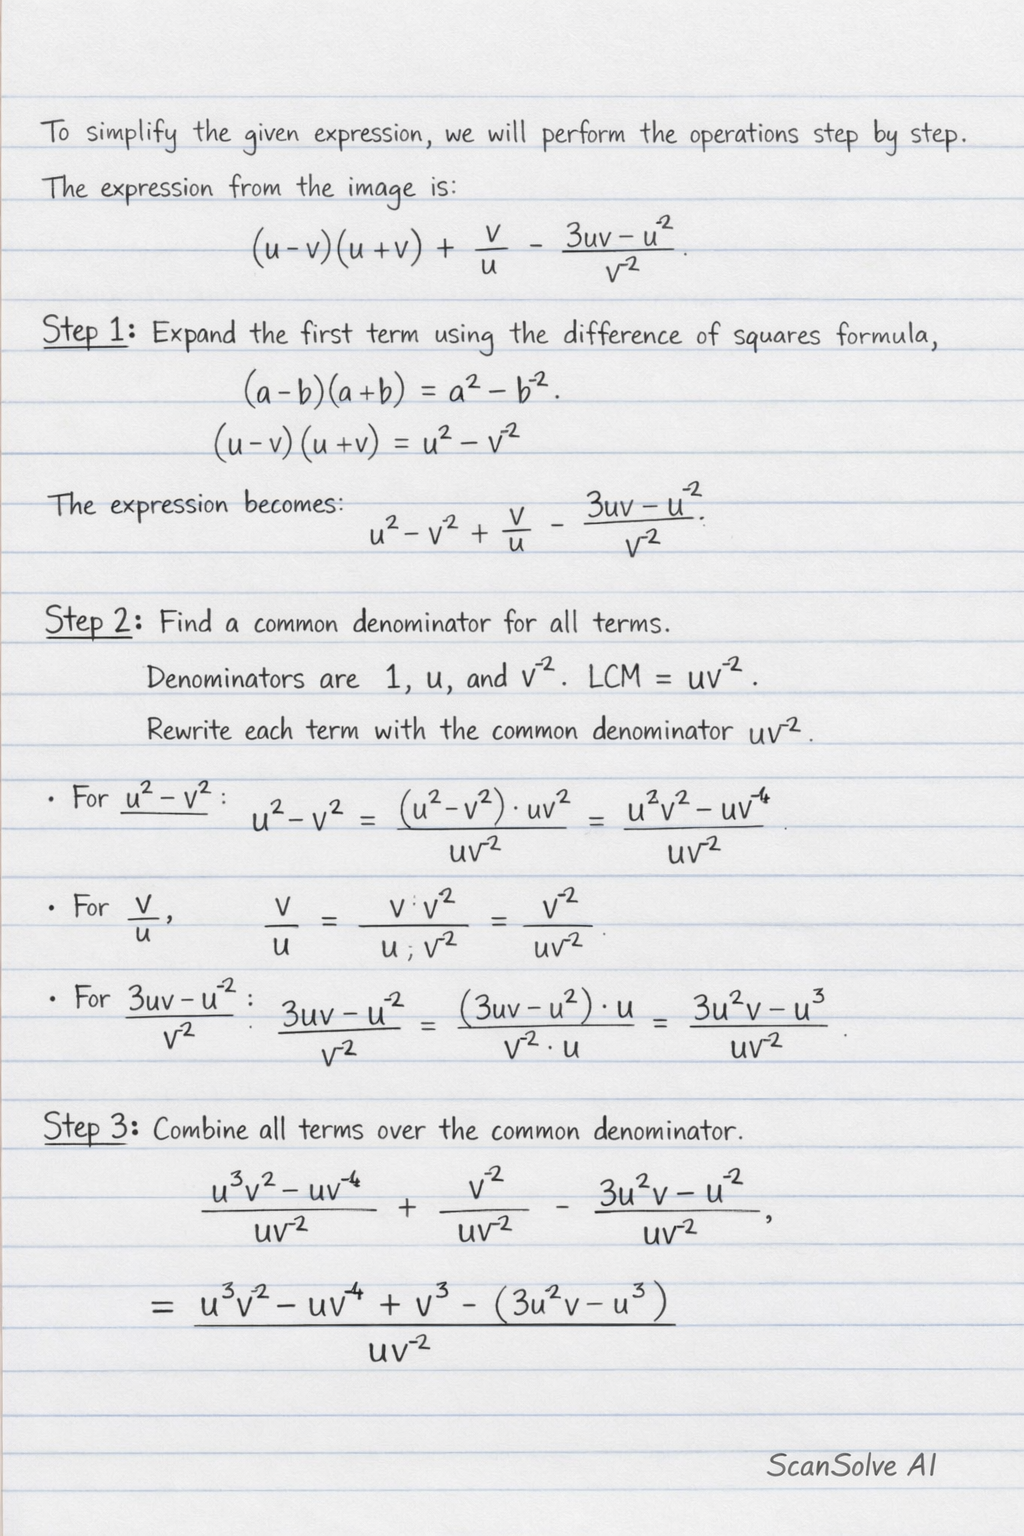 To simplify the given expression, we will perform the operations step by step.
The expression from the image is:
(u-v)(u+v) + v/u - (3uv-u⁻²)/v⁻².
Step 1: Expand the first term using the difference of squares formula,
(a-b)(a+b) = a² - b⁻².
(u-v)(u+v) = u² - v⁻²
The expression becomes: u² - v² + v/u - (3uv-u⁻²)/v⁻².
Step 2: Find a common denominator for all terms.
Denominators are 1, u, and v⁻². LCM = uv⁻².
Rewrite each term with the common denominator uv⁻².
• For u² - v²: u² - v² = ((u²-v²)·uv²)/(uv⁻²) = (u²v² - uv⁻⁴)/(uv⁻²).
• For v/u, v/u = (v:v²)/(u;v²) = v⁻²/(uv⁻²).
• For (3uv-u⁻²)/v⁻²: (3uv-u⁻²)/v⁻² = ((3uv-u²)·u)/(v⁻²·u) = (3u²v-u³)/(uv⁻²).
Step 3: Combine all terms over the common denominator.
(u³v² - uv⁻⁴)/(uv⁻²) + v⁻²/(uv⁻²) - (3u²v - u⁻²)/(uv⁻²),
= (u³v⁻² - uv⁻⁴ + v³ - (3u²v - u³))/(uv⁻²)
ScanSolve AI